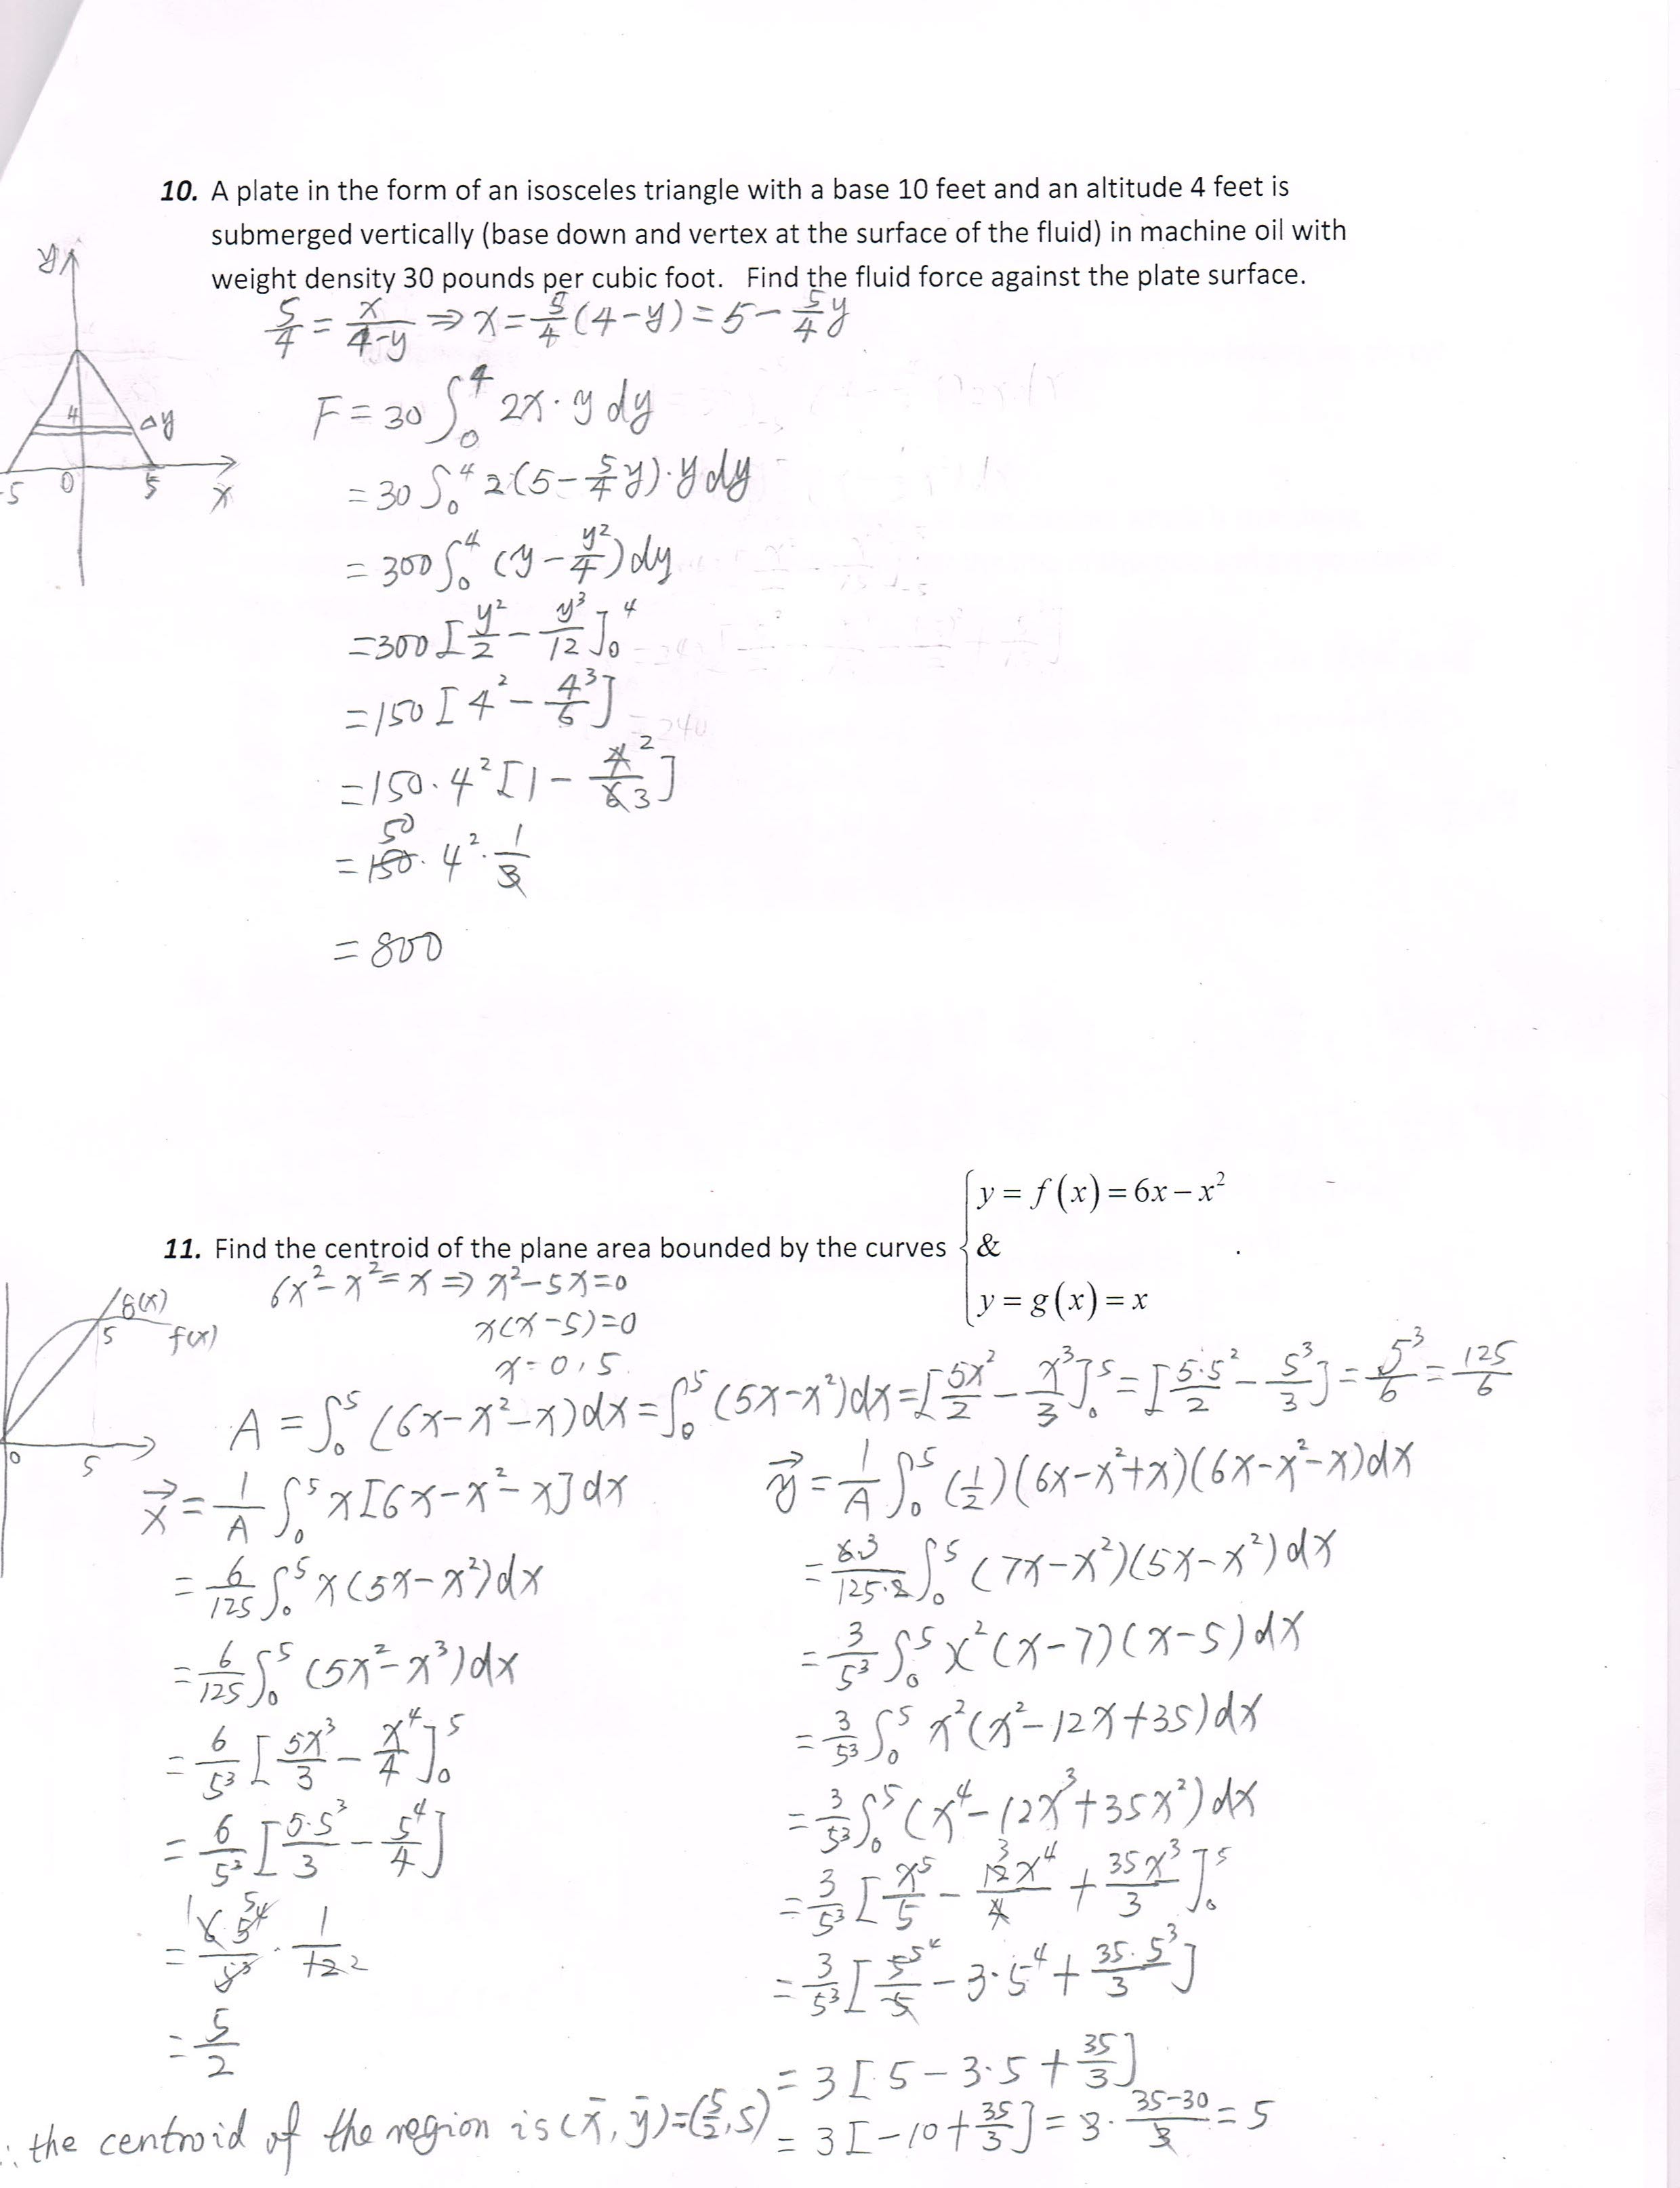 10. A plate in the form of an isosceles triangle with a base 10 feet and an altitude 4 feet is
submerged vertically (base down and vertex at the surface of the fluid) in machine oil with
weight density 30 pounds per cubic foot. Find the fluid force against the plate surface.
y
4
Δy
-5 0 5 x
5/4 = x/(4-y) ⇒ x = 5/4 (4-y) = 5 - 5/4 y
F = 30 ∫₀⁴ 2x · y dy
= 30 ∫₀⁴ 2(5 - 5/4 y) · y dy
= 300 ∫₀⁴ (y - y²/4) dy
= 300 [y²/2 - y³/12]₀⁴
= 150 [4² - 4³/6]
= 150 · 4² [1 - 4 2/6 3]
50
= 150 · 4² · 1/3
= 800
11. Find the centroid of the plane area bounded by the curves { y = f(x) = 6x - x²
&
y = g(x) = x .
g(x)
5 f(x)
0 5
6x² - x² = x ⇒ x² - 5x = 0
x(x-5) = 0
x = 0, 5
A = ∫₀⁵ (6x - x² - x) dx = ∫₀⁵ (5x - x²) dx = [5x²/2 - x³/3]₀⁵ = [5·5²/2 - 5³/3] = 5³/6 = 125/6
x⃗ = 1/A ∫₀⁵ x[6x - x² - x] dx
= 6/125 ∫₀⁵ x(5x - x²) dx
= 6/125 ∫₀⁵ (5x² - x³) dx
= 6/5³ [5x³/3 - x⁴/4]₀⁵
= 6/5³ [5·5³/3 - 5⁴/4]
= 1 6·5⁴ 5/5³ · 1/12 2
= 5/2
y⃗ = 1/A ∫₀⁵ (1/2)(6x - x² + x)(6x - x² - x) dx
= 6 3/125·2 ∫₀⁵ (7x - x²)(5x - x²) dx
= 3/5³ ∫₀⁵ x²(x-7)(x-5) dx
= 3/5³ ∫₀⁵ x²(x² - 12x + 35) dx
= 3/5³ ∫₀⁵ (x⁴ - 12x³ + 35x²) dx
= 3/5³ [x⁵/5 - 12 3 x⁴/4 + 35x³/3]₀⁵
= 3/5³ [5⁵ 4/5 - 3·5⁴ + 35·5³/3]
= 3 [5 - 3·5 + 35/3]
= 3 [-10 + 35/3] = 3 · (35-30)/3 = 5
∴ the centroid of the region is (x̄, ȳ) = (5/2, 5)